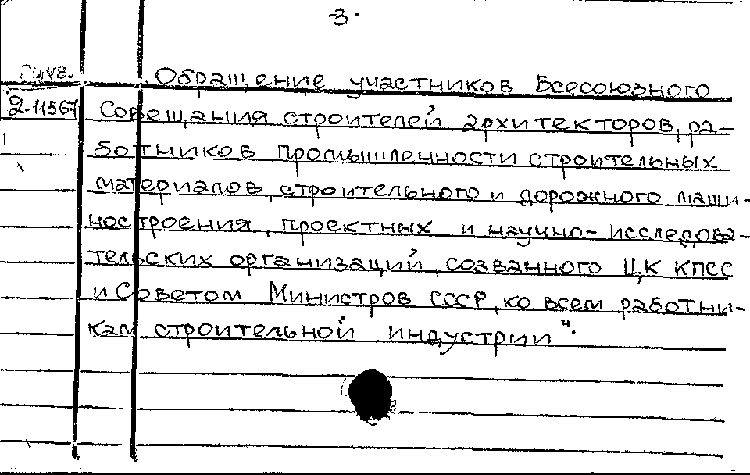 -3.
Обращение участников Всесоюзного
2-11567 Совещания строителей, архитекторов, ра-
ботников промышленности строительных
материалов, строительного и дорожного маши-
ностроения, проектных и научно-исследова-
тельских организаций, созванного ЦК КПСС
и Советом Министров СССР, ко всем работни-
кам строительной индустрии".